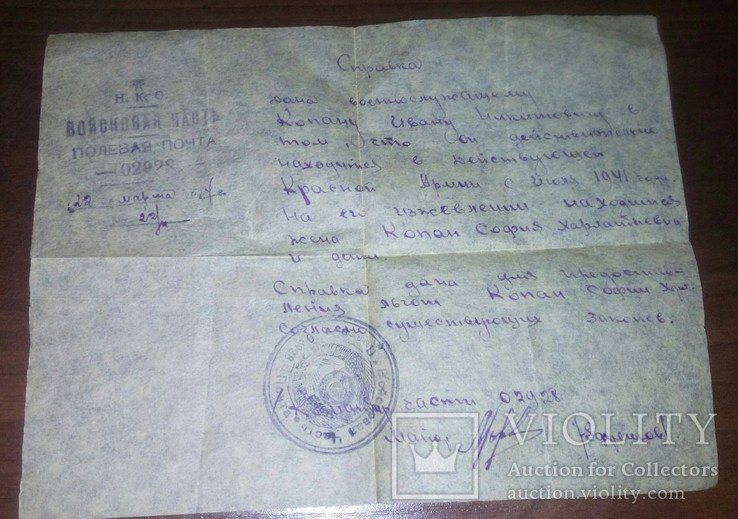 Н.К.О.
ВОЙСКОВАЯ ЧАСТЬ
ПОЛЕВАЯ ПОЧТА
— 02928 —
"22" марта
22/
Справка
дана военнослужащему
Копану Ивану Никитовичу в
том, что он действительно
находится в действующей
Красной Армии с июля 1941 года
На его иждевении находится
жена Копан София Харлампиевна
и дети.
Справка дана для предостав
ления льгот Копан Софии Хар.
согласно существующих законов.
Командир части 02928
Майор
Войсковая Часть
VIOLITY
Auction for Collectors
auction.violity.com